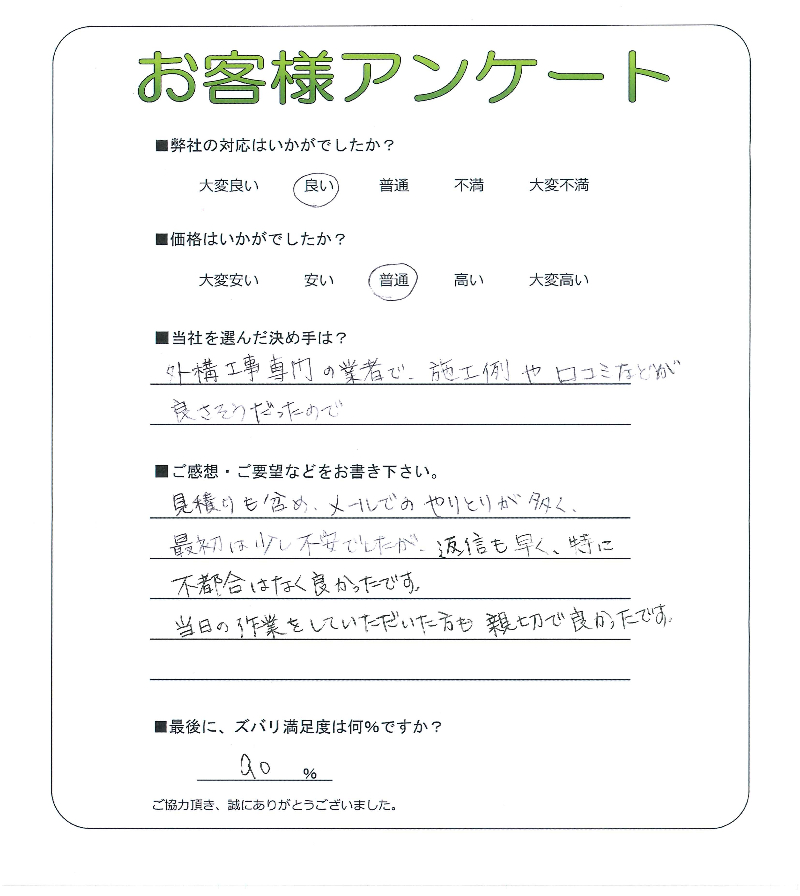 お客様アンケート
■弊社の対応はいかがでしたか？
大変良い 良い 普通 不満 大変不満
■価格はいかがでしたか？
大変安い 安い 普通 高い 大変高い
■当社を選んだ決め手は？
外構工事専門の業者で、施工例や口コミなどが
良さそうだったので
■ご感想・ご要望などをお書き下さい。
見積りも含め、メールでのやりとりが多く、
最初は少し不安でしたが、返信も早く、特に
不都合はなく良かったです。
当日の作業をしていただいた方も親切で良かったです。
■最後に、ズバリ満足度は何％ですか？
90 ％
ご協力頂き、誠にありがとうございました。